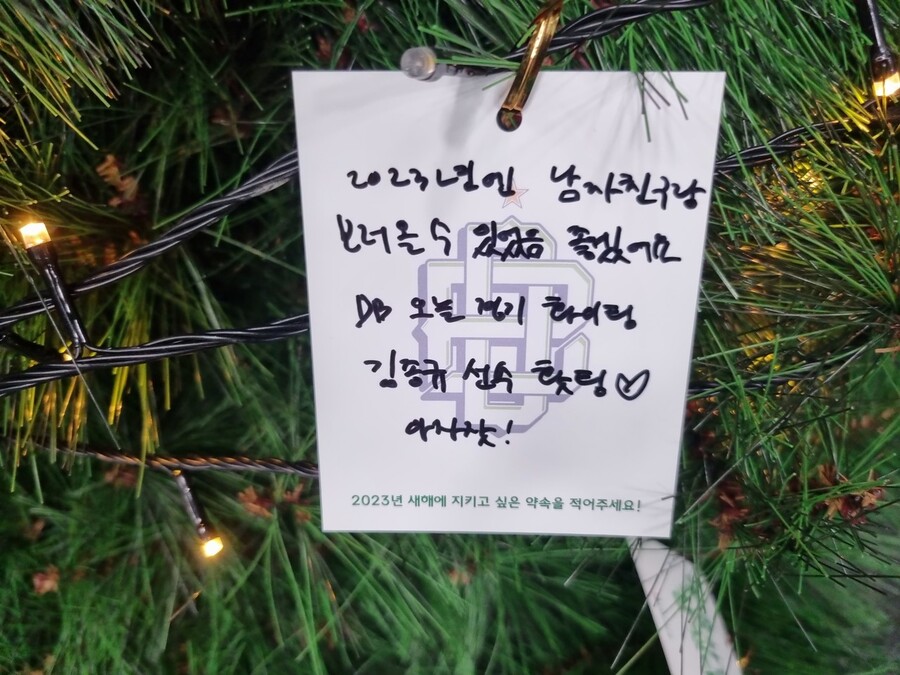 2023년엔 남자친구랑
보러올 수 있었음 좋겠어요
DB 오늘 경기 화이팅
김종규 선수 홧팅♡
아자잣!
2023년 새해에 지키고 싶은 약속을 적어주세요!